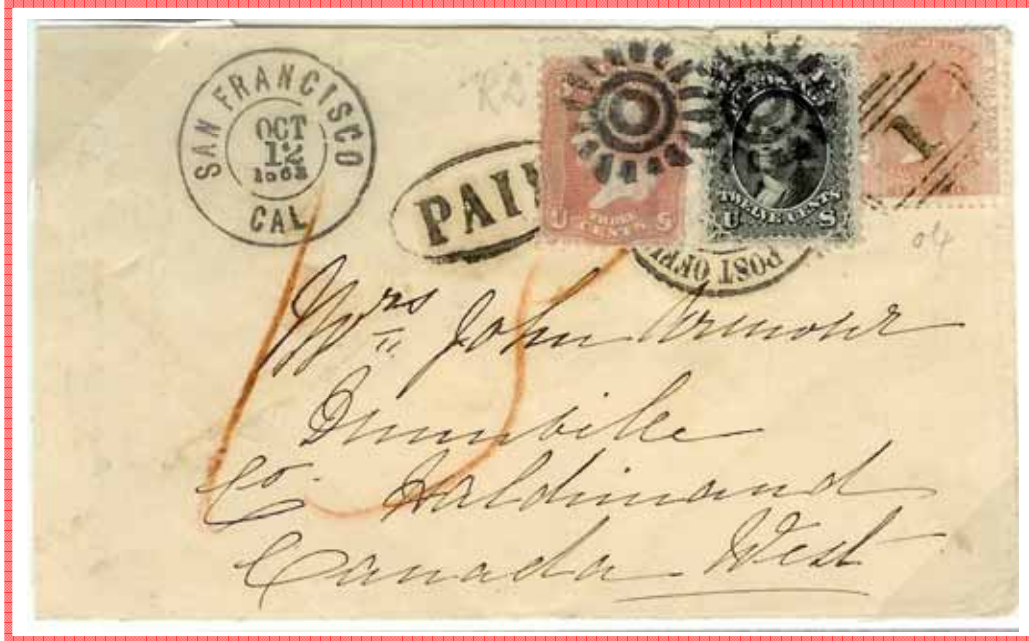 SAN FRANCISCO
OCT
12
1863
CAL
PAI
THREE
CENTS
U S
TWELVE CENTS
U S
1
POST OFFI
15
04
Mrs John Armour
Dunnville
Co. Haldimand
Canada West